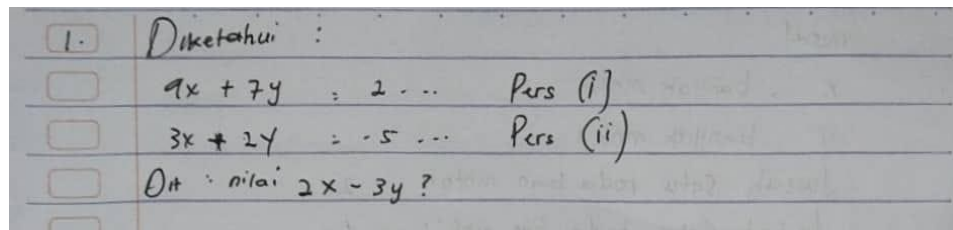 1. Diketahui :
9x + 7y = 2 ... Pers (i)
3x + 2y = -5 ... Pers (ii)
Dit : nilai 2x - 3y ?